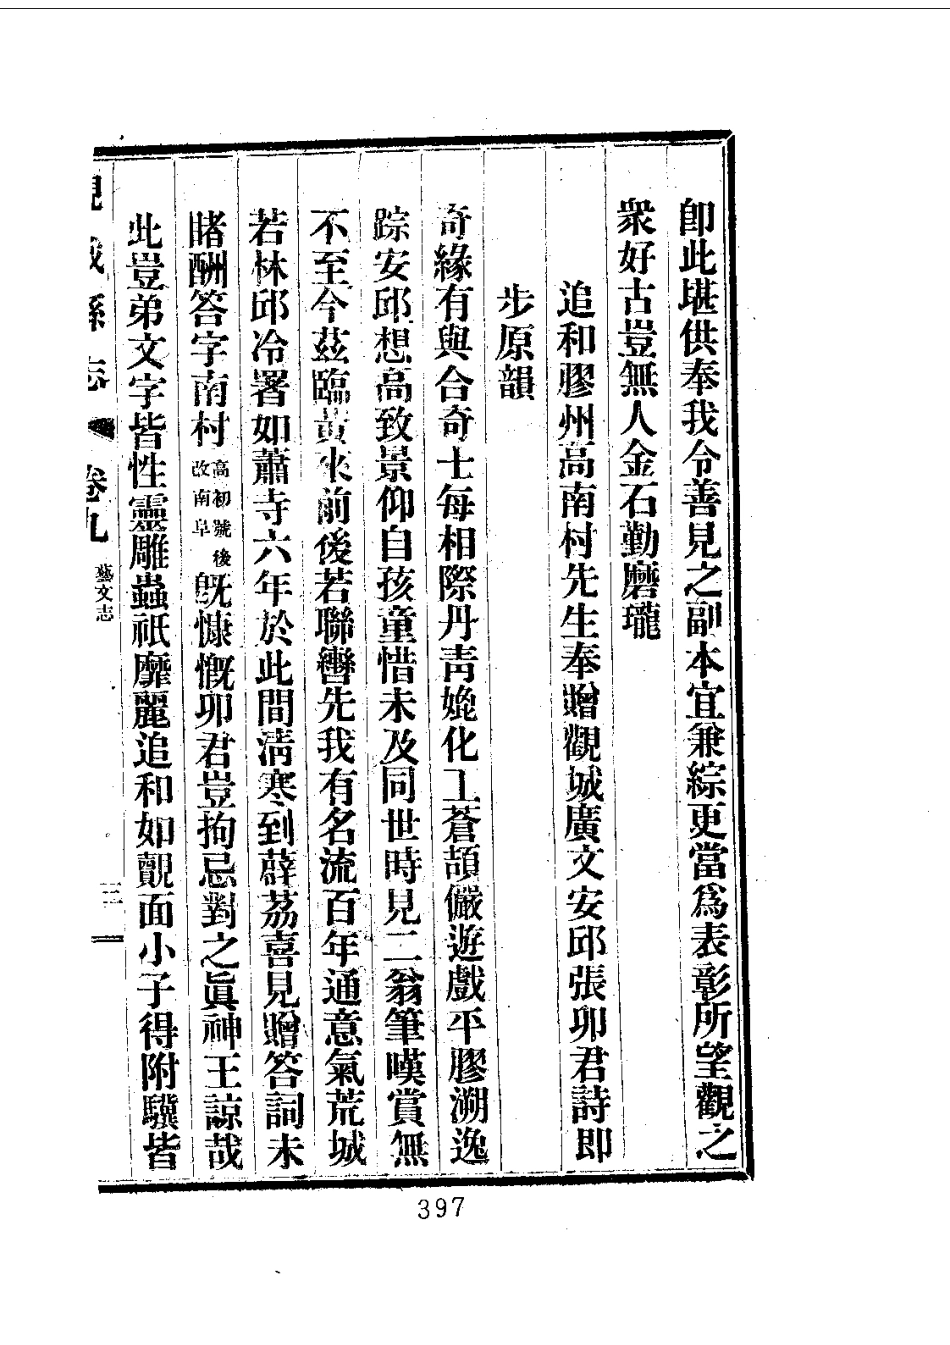 卽此堪供奉我令善見之副本宜兼綜更當爲表彰所望觀之
衆好古豈無人金石勤磨瓏
追和膠州高南村先生奉贈觀城廣文安邱張卯君詩即
步原韻
奇緣有與合奇士每相際丹靑媲化工蒼頡儼遊戲平膠溯逸
踪安邱想高致景仰自孩童惜未及同世時見二翁筆嘆賞無
不至今茲臨黃來前後若聯轡先我有名流百年通意氣荒城
若林邱冷署如蕭寺六年於此間淸寒到薜荔喜見贈答詞未
睹酬答字南村高初號後改南阜旣慷慨卯君豈拘忌對之眞神王諒哉
此豈弟文字皆性靈雕蟲祇靡麗追和如覿面小子得附驥皆
觀城縣志 卷九 藝文志 三
397